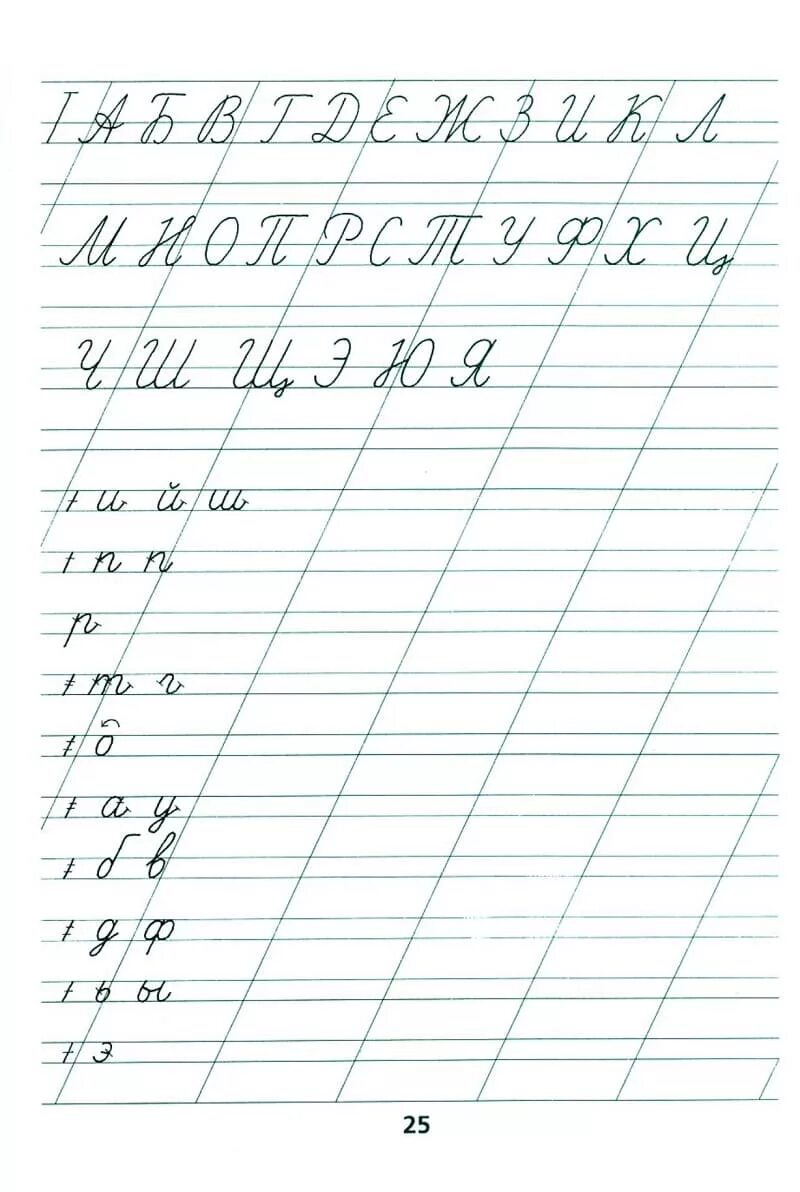 А Б В Г Д Е Ж З И К Л
М Н О П Р С Т У Ф Х Ц
Ч Ш Щ Э Ю Я
и й ш
п п
р
т г
о
а у
б в
д ф
ь ы
э
25